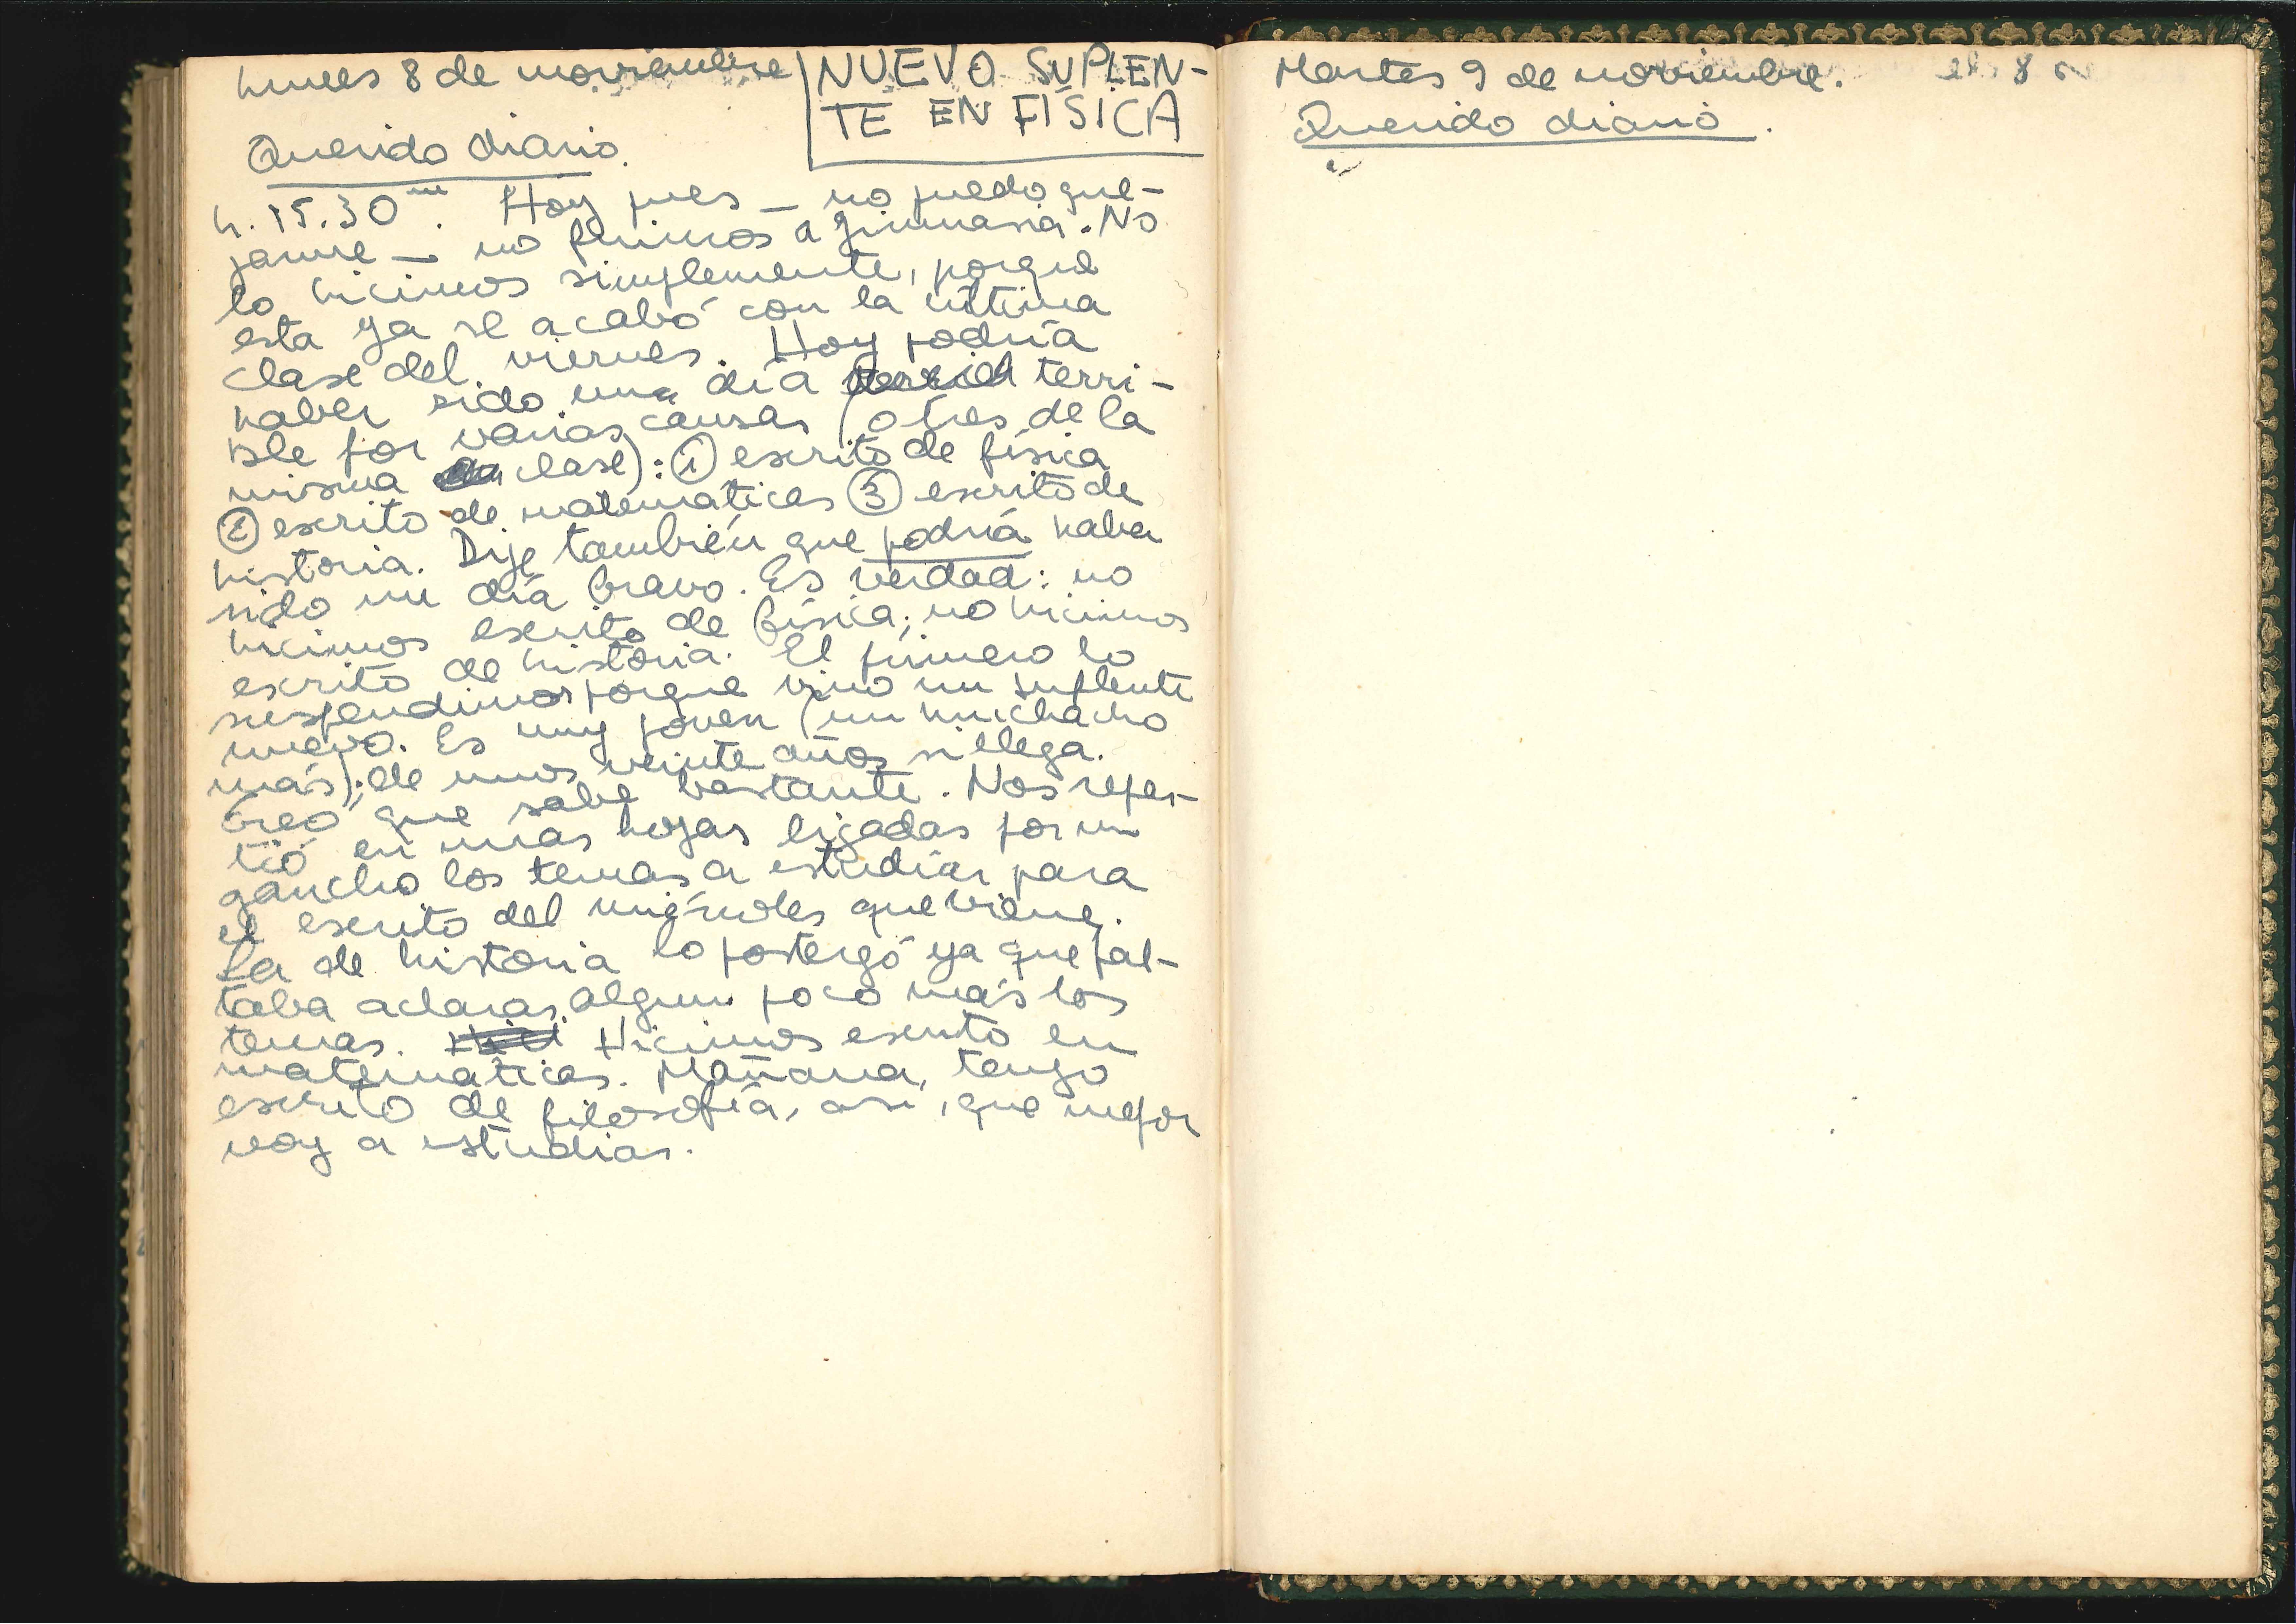 Lunes 8 de noviembre
NUEVO SUPLEN-
TE EN FÍSICA
Querido diario.
h. 15.30 m. Hoy pues — no puedo que-
jarme — no fuimos a gimnasia. No
lo hicimos simplemente, porque
esta ya se acabó con la última
clase del viernes. Hoy podría
haber sido una día terri-
ble por varias causas (o tres de la
misma clase): ① escrito de física
② escrito de matemáticas ③ escrito de
historia. Dije también que podría haber
sido un día bravo. Es verdad: no
hicimos escrito de física; no hicimos
escrito de historia. El primero lo
suspendimos porque vino un suplente
nuevo. Es muy joven (un muchacho
más); de unos veinte años si llega.
Creo que sabe bastante. Nos repar-
tió en unas hojas ligadas por un
gancho los temas a estudiar para
el escrito del miércoles que viene.
La de historia lo postergó ya que fal-
taba aclarar algun poco más los
temas. Hicimos escrito en
matemáticas. Mañana, tengo
escrito de filosofía, asi, que mejor
voy a estudiar.
Martes 9 de noviembre.
Querido diario.